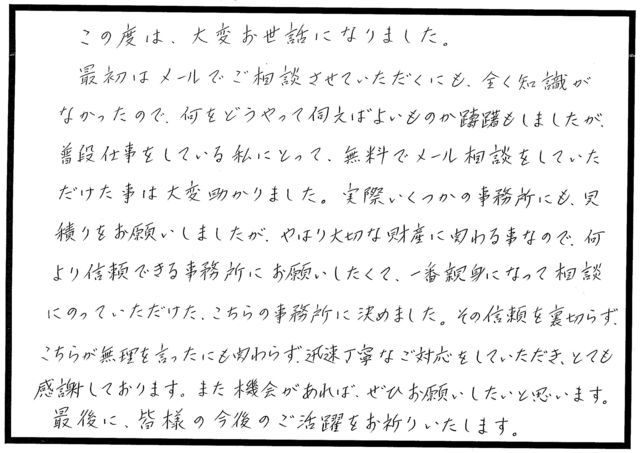 この度は、大変お世話になりました。
最初はメールでご相談させていただくにも、全く知識が
なかったので、何をどうやって伺えばよいものか躊躇もしましたが、
普段仕事をしている私にとって、無料でメール相談をしていた
だけた事は大変助かりました。実際いくつかの事務所にも、見
積りをお願いしましたが、やはり大切な財産に関わる事なので、何
より信頼できる事務所にお願いしたくて、一番親身になって相談
にのっていただけた、こちらの事務所に決めました。その信頼を裏切らず、
こちらが無理を言ったにも関わらず、迅速丁寧なご対応をしていただき、とても
感謝しております。また機会があれば、ぜひお願いしたいと思います。
最後に、皆様の今後のご活躍をお祈りいたします。